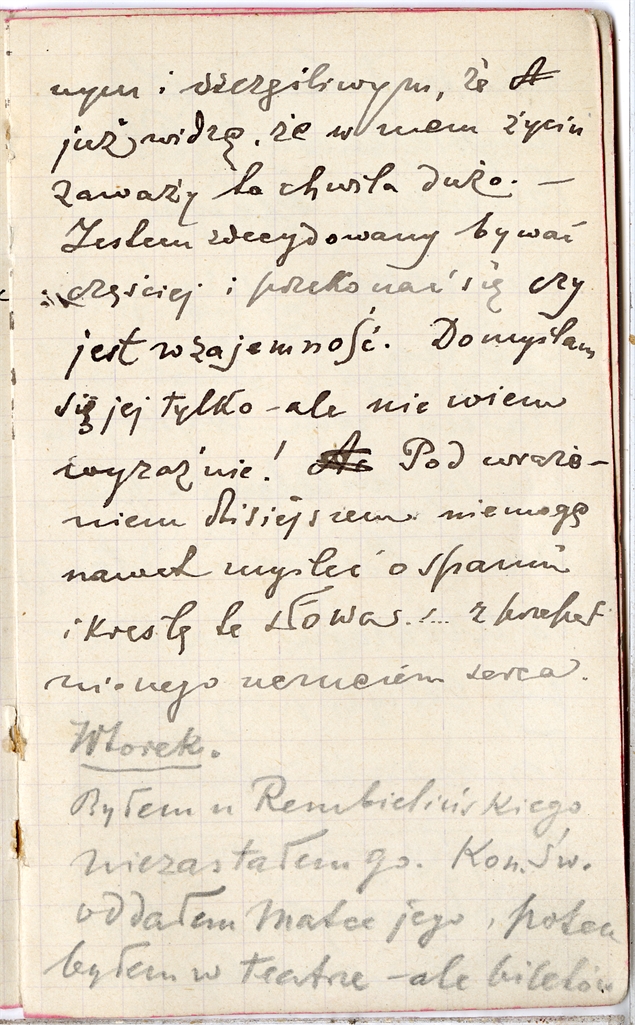 nym i szczęśliwym, że
już widzę, że w mem życiu
zaważy ta chwila dużo. —
Jestem zdecydowany bywać
częściej i przekonać się czy
jest wzajemność. Domyślam
się jej tylko - ale nie wiem
wyraźnie! Pod wraże-
niem dzisiejszem niemogę
nawet myśleć o spaniu
i kreślę te słowa..... z przepeł
nionego uczuciem serca.
Wtorek.
Byłem u Rembielińskiego
niezastałem go. Kon. Św.
oddałem Matce jego, potem
byłem w teatrze - ale biletów